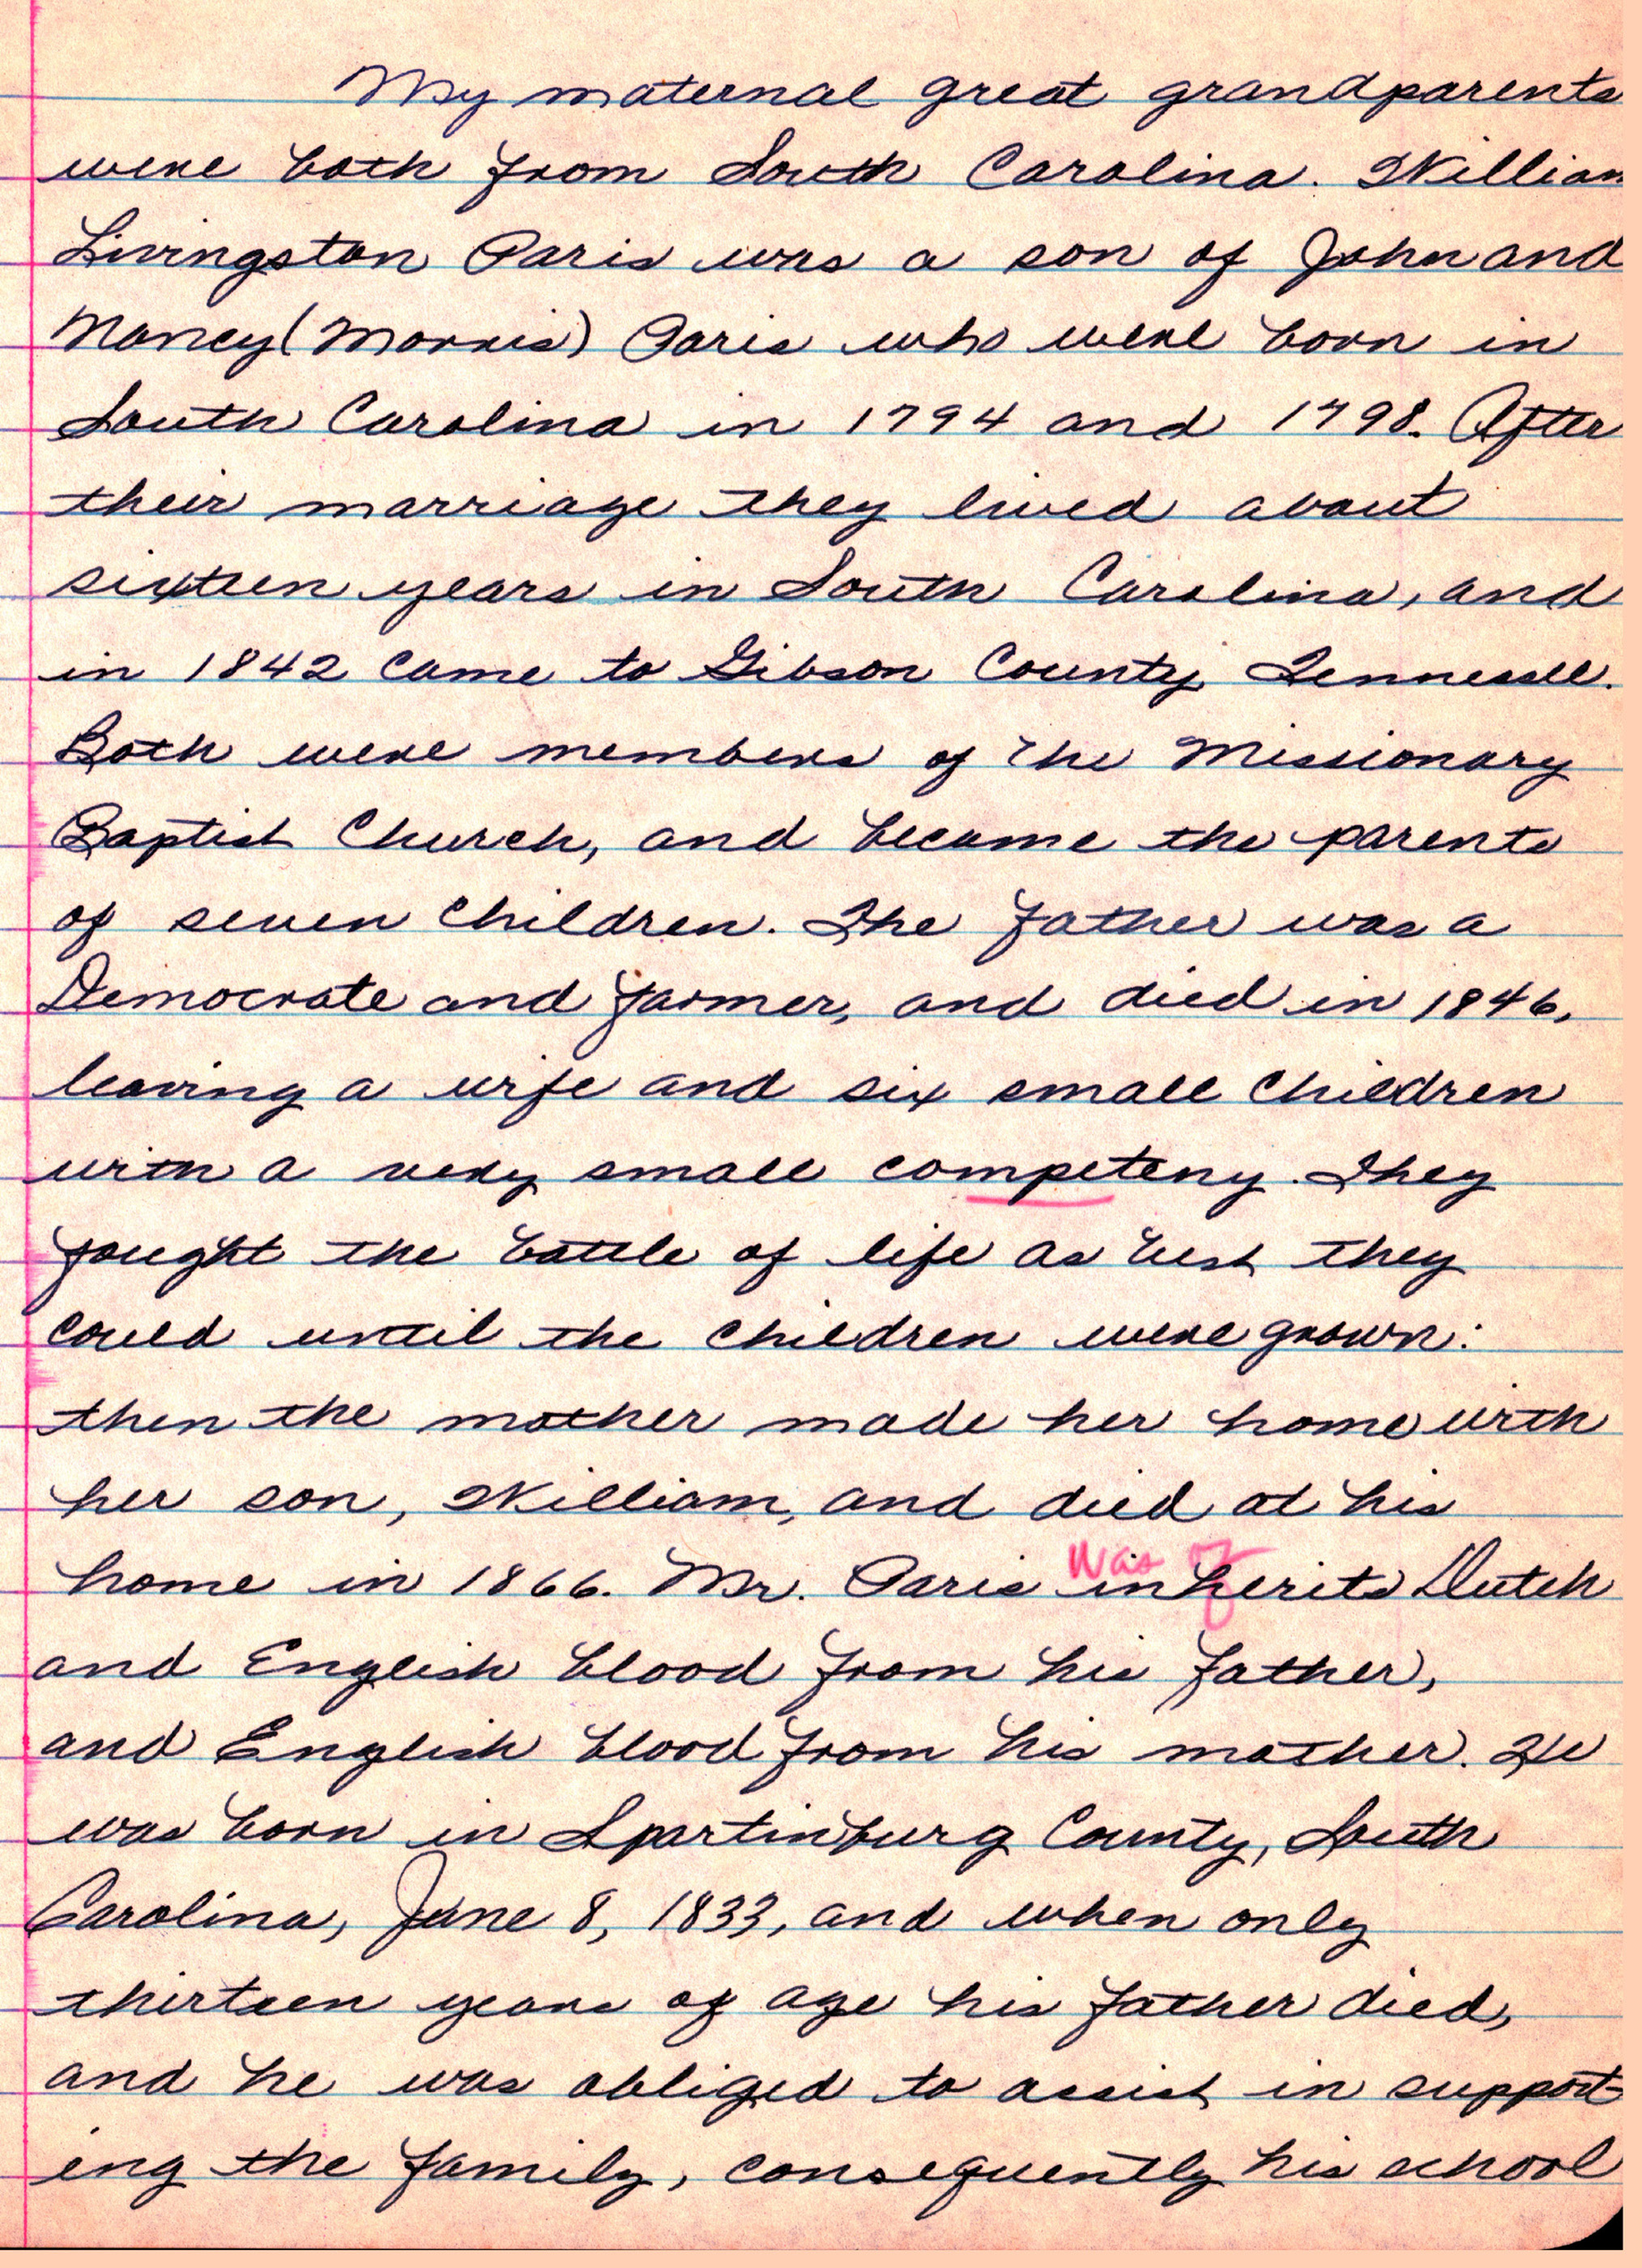 My maternal great grandparents
were both from South Carolina. William
Livingston Paris was a son of John and
Nancy (Morris) Paris who were born in
South Carolina in 1794 and 1798. After
their marriage they lived about
sixteen years in South Carolina, and
in 1842 came to Gibson County, Tennessee.
Both were members of the Missionary
Baptist Church, and became the parents
of seven children. The father was a
Democrate and farmer, and died in 1846,
leaving a wife and six small children
with a very small competeny. They
fought the battle of life as best they
could until the children were grown:
then the mother made her home with
her son, William, and died at his
was of
home in 1866. Mr. Paris inherits Dutch
and English blood from his father,
and English blood from his mother. He
was born in Spartinburg County, South
Carolina, June 8, 1833, and when only
thirteen years of age his father died,
and he was obliged to assist in support-
ing the family, consequently his school